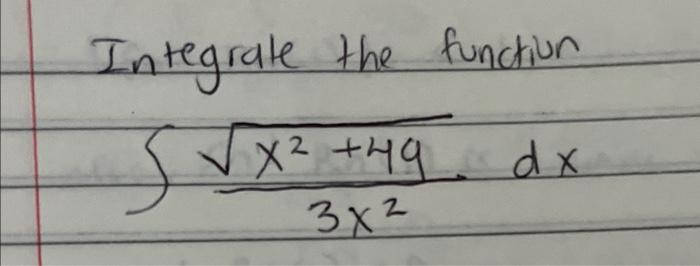 Integrate the function
∫ √(x² + 49) / 3x² dx